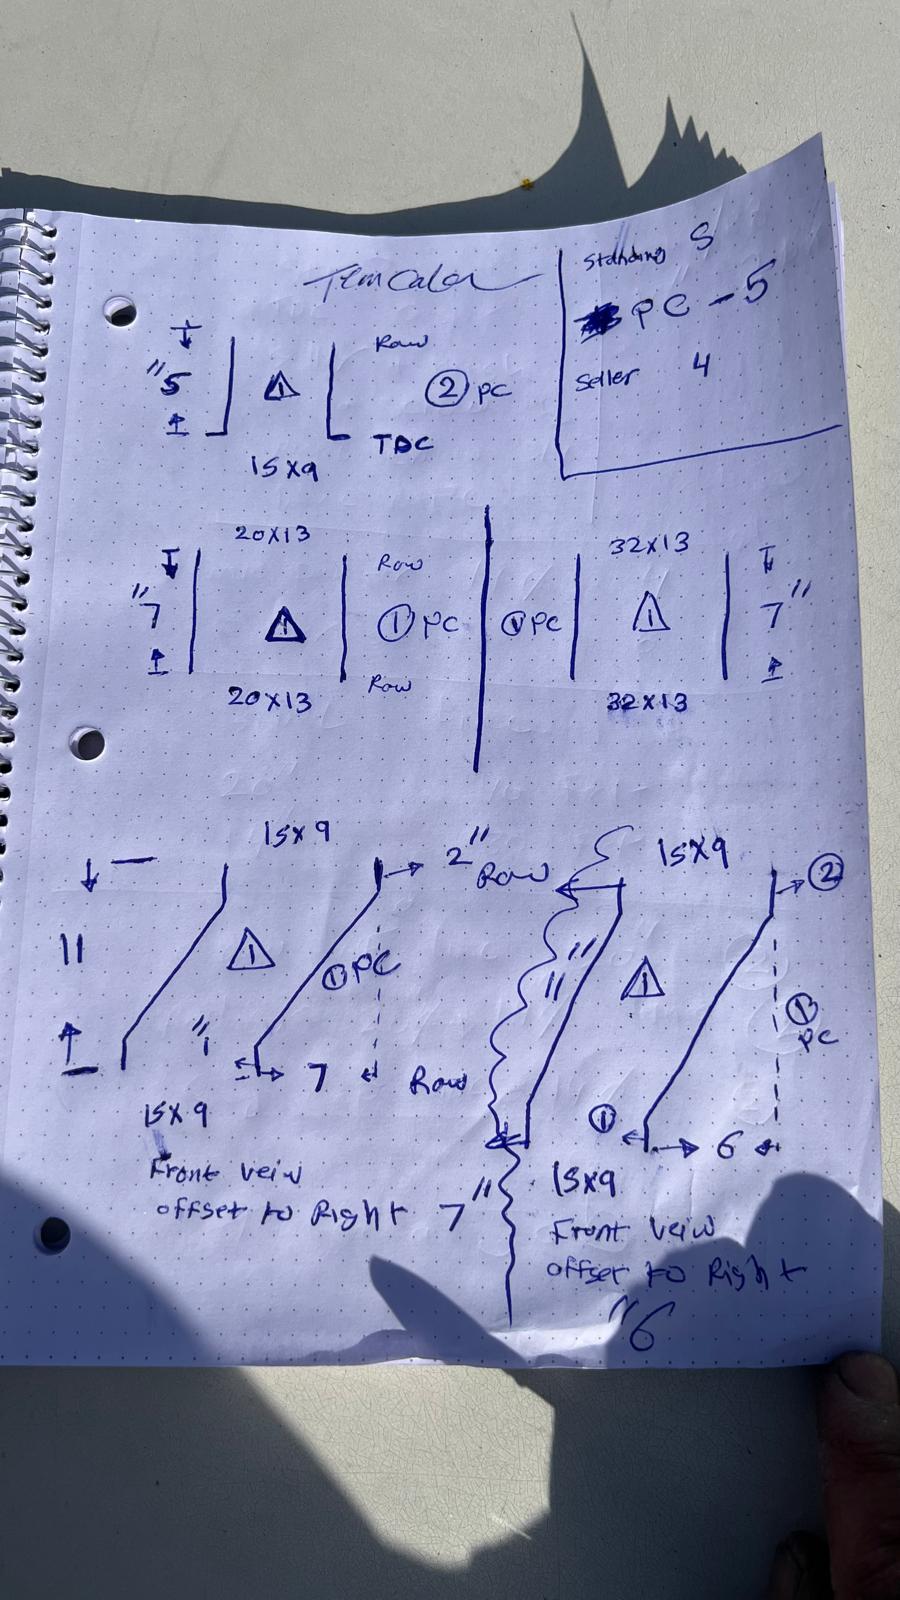 Standing S
PC - 5
Seller 4
Raw
"5
1
2 PC
TDC
15x9
20x13
Raw
"7
1
1 PC
Raw
20x13
32x13
1 PC
1
7"
32x13
15x9
2"
Raw
11
1
1 PC
"1
7
Raw
15x9
Front veiw
offset to Right 7"
15x9
2
11"
1
1 PC
1
6
15x9
Front veiw
offset to Right
"6